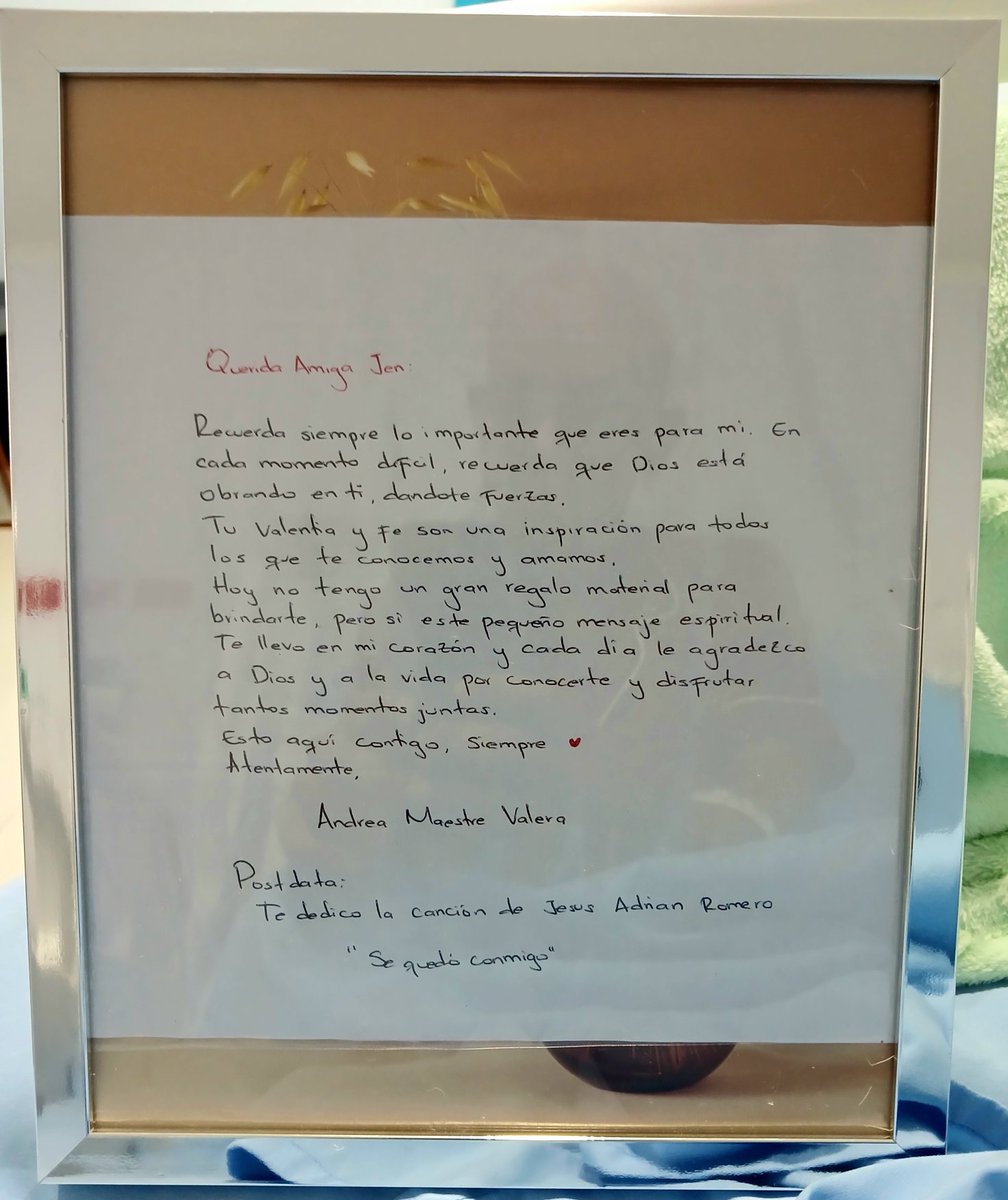 Querida Amiga Jen:
Recuerda siempre lo importante que eres para mi. En
cada momento difícil, recuerda que Dios está
obrando en ti, dandote fuerzas.
Tu Valentia y Fe son una inspiración para todos
los que te conocemos y amamos.
Hoy no tengo un gran regalo material para
brindarte, pero si este pequeño mensaje espiritual.
Te llevo en mi corazón y cada día le agradezco
a Dios y a la vida por conocerte y disfrutar
tantos momentos juntas.
Esto aquí contigo, Siempre ♥
Atentamente,
Andrea Maestre Valera
Postdata:
Te dedico la canción de Jesus Adrian Romero
"Se quedó conmigo"